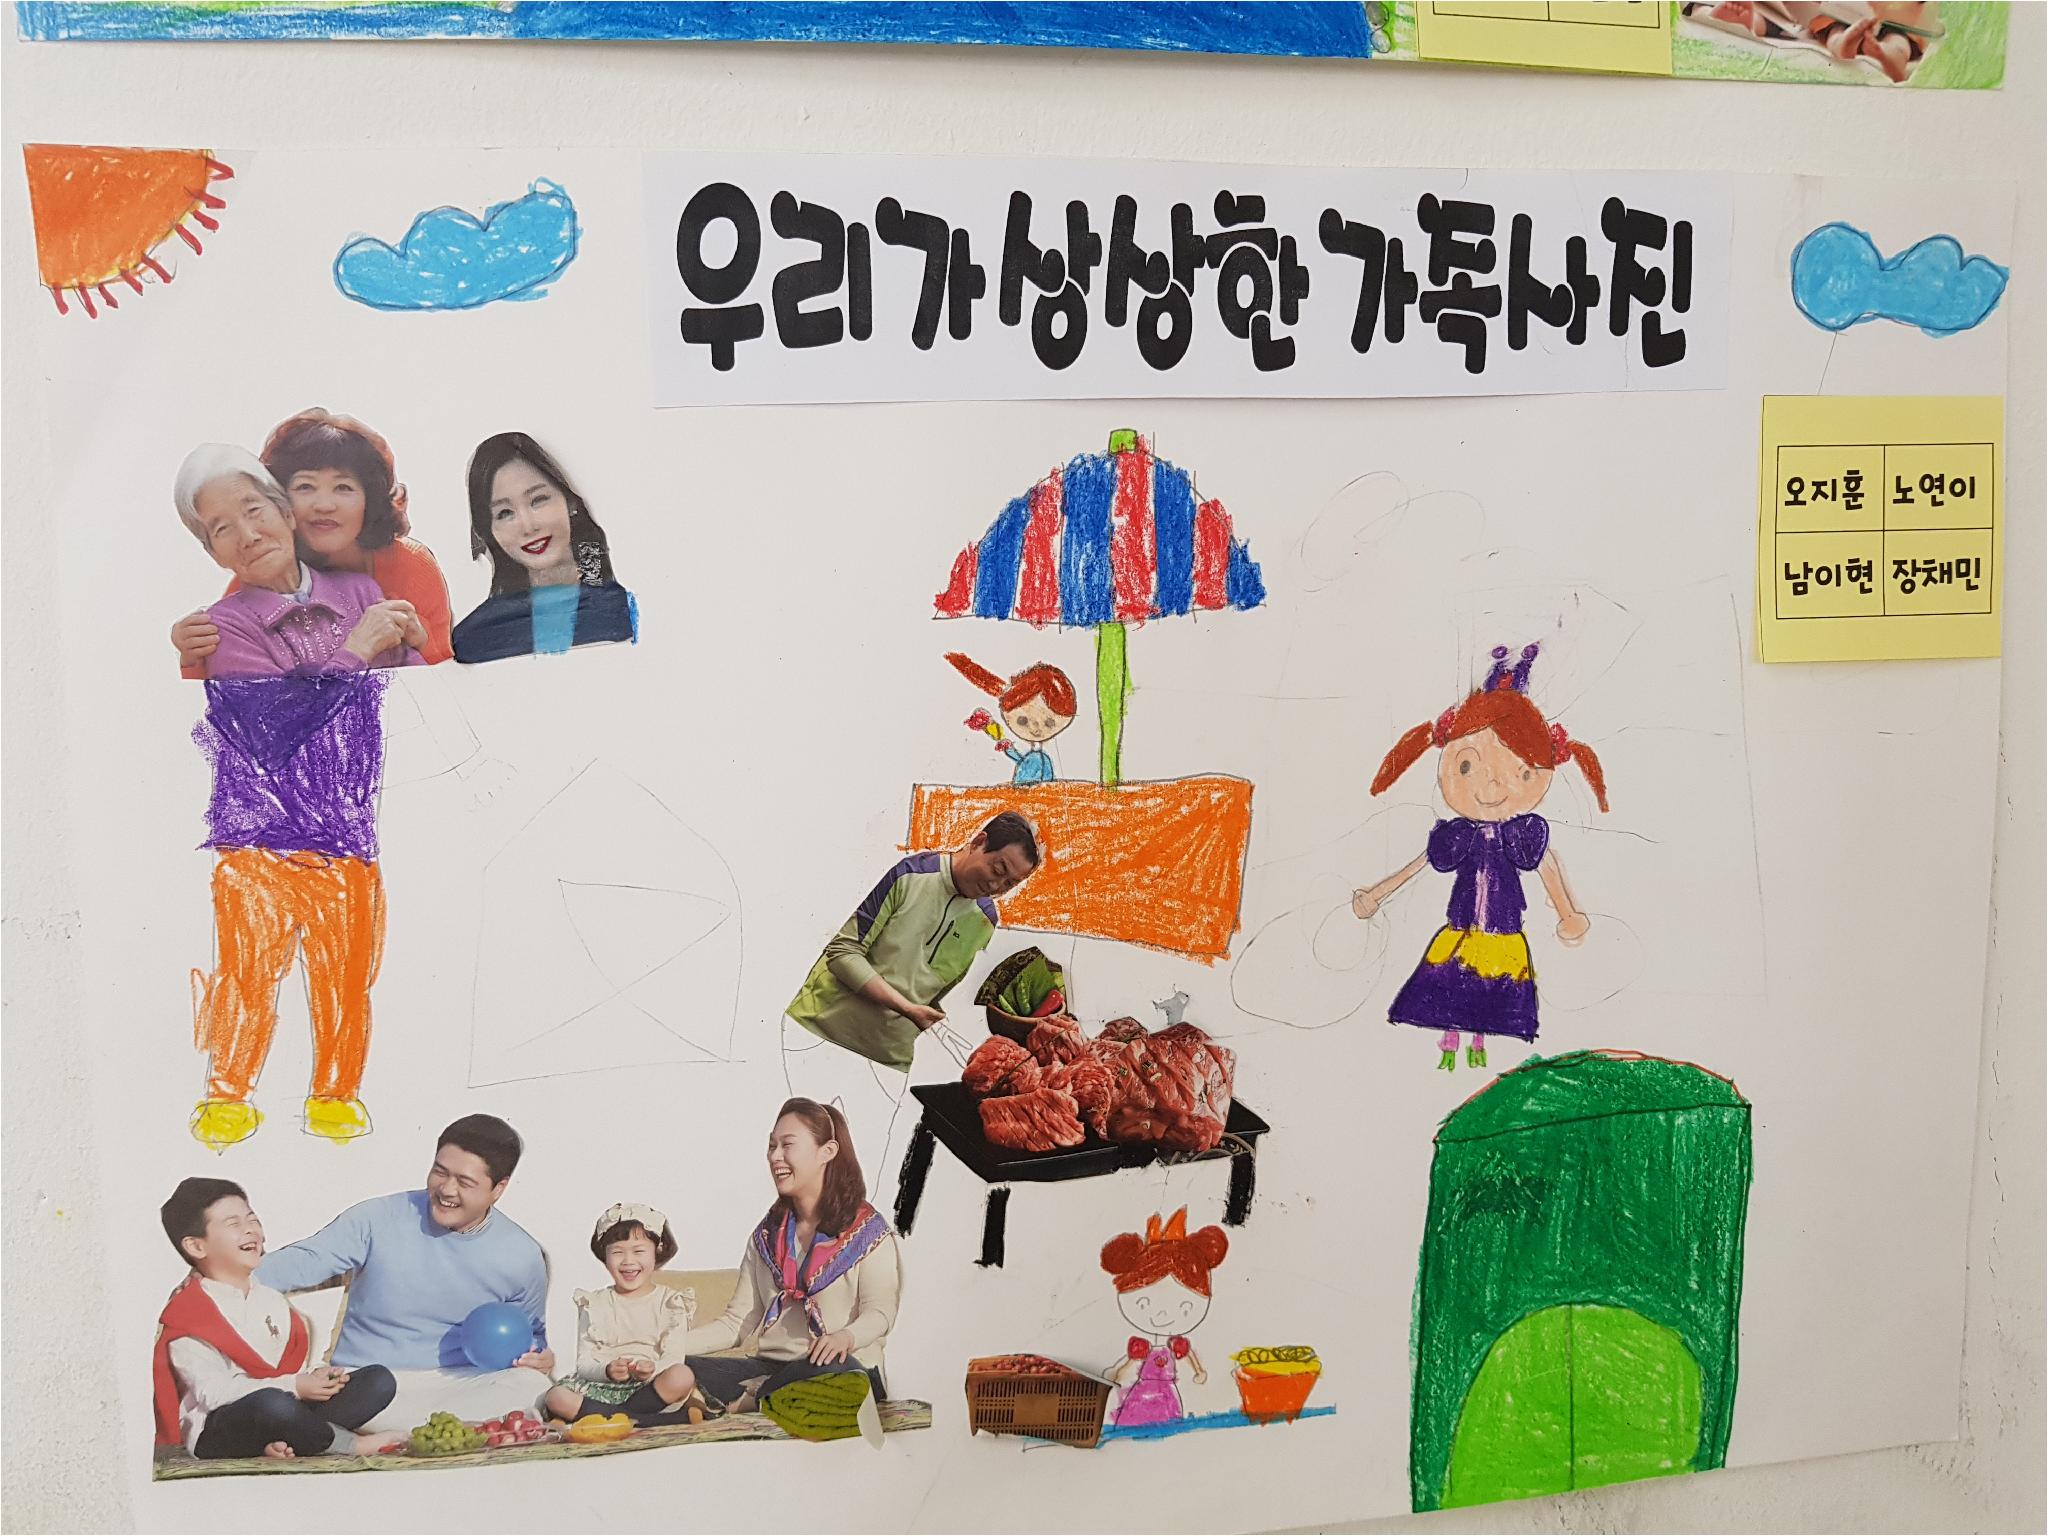 우리가 상상한 가족사진
오지훈 노연이
남이현 장채민